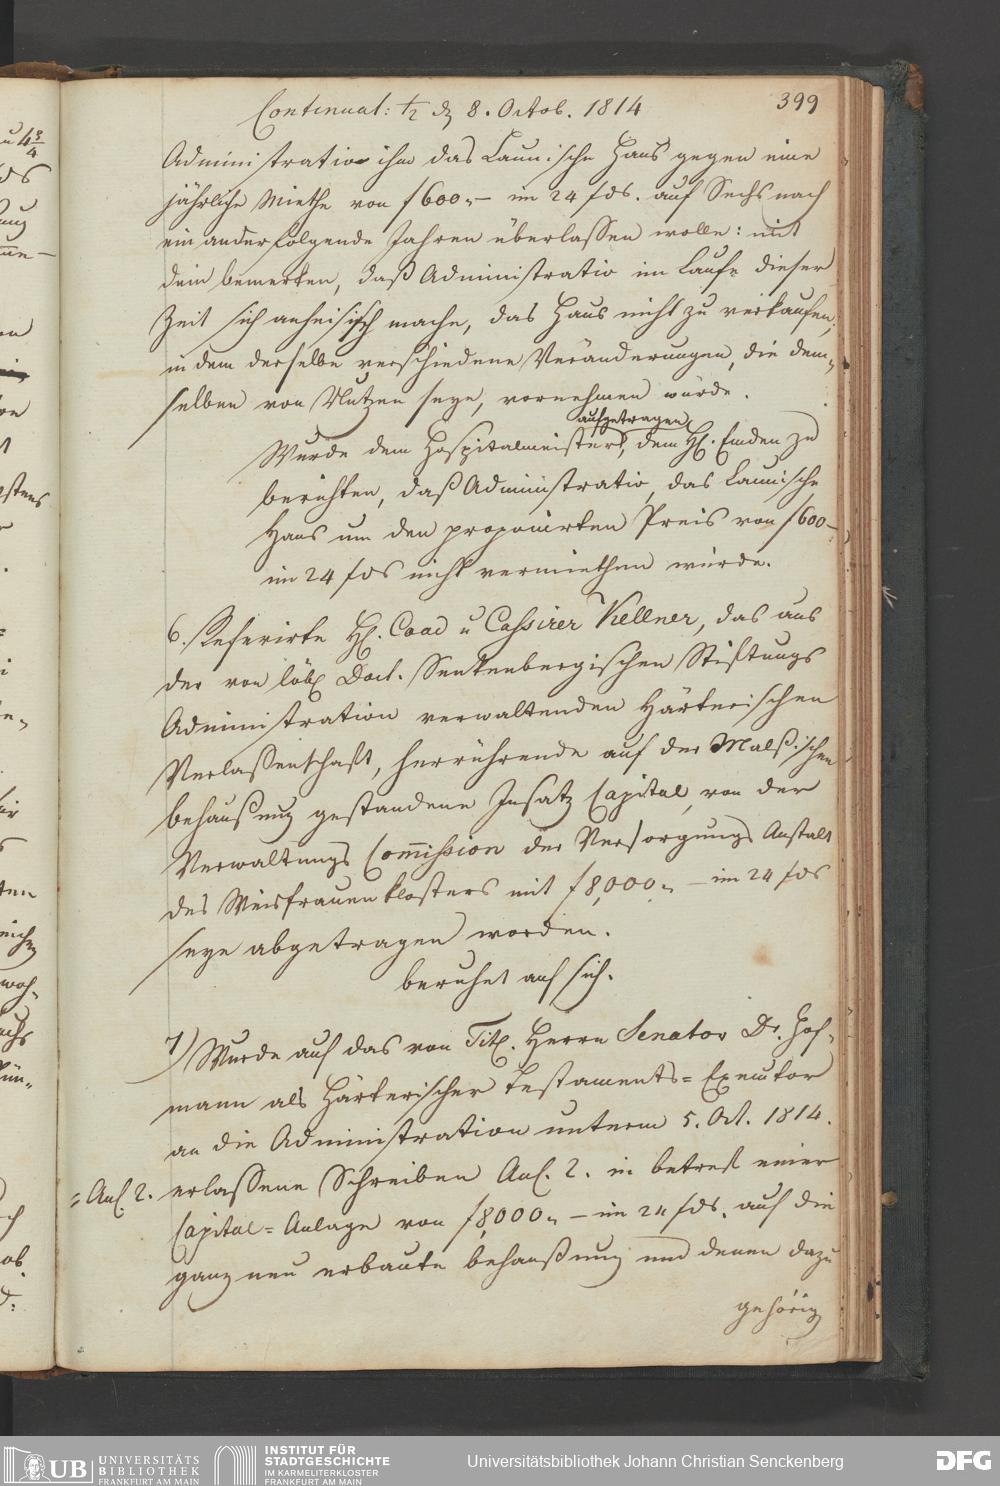 Continuat: ½ d 8. Octob. 1814
399
Administratio ihm das Launische Haus gegen eine
jährliche Miethe von f 600,- im 24 fds. auf Sechs nach
ein ander folgende Jahren überlassen wolle: mit
dem bemerken, daß Administratio im Laufe dieser
Zeit sich anheischich mache, das Haus nicht zu verkaufen,
in dem derselbe verschiedene Veränderungen, die dem-
selben von Nutzen seye, vornehmen würde.
aufgetragen
Wurde dem Hospitalmeister, dem H. Emden zu
berichten, daß Administratio, das Launische
Haus um den proponirten Preis von f 600-
im 24 fds nicht vermiethen würde.
6. Referirte H. Coad u Cassirer Kellner, das aus
der von löbl. Doct. Senkenbergischen Stiftungs
Administration verwaltenden Härterischen
Verlassenschaft, herrührende auf der Malßischen
behaußung gestandene Insatz Capital, von der
Verwaltungs Com̄ission der Versorgungs Anstalt
des Weisfrauenklosters mit f 8,000,, - im 24 fds
seye abgetragen worden.
beruhet auf sich.
7) Wurde auf das von Tit. Herrn Senator Dr. Hof-
mann als Härterischer Testaments= Executor
an die Administration unterm 5. Oct. 1814.
erlassene Schreiben Anl. 2. in betref einer
= Anl. 2.
Capital= Anlage von f 8,000,, - im 24 fds. auf die
ganz neu erbaute behaußung und denen dazu
gehörig
UB UNIVERSITÄTS BIBLIOTHEK FRANKFURT AM MAIN
INSTITUT FÜR STADTGESCHICHTE IM KARMELITERKLOSTER FRANKFURT AM MAIN
Universitätsbibliothek Johann Christian Senckenberg
DFG